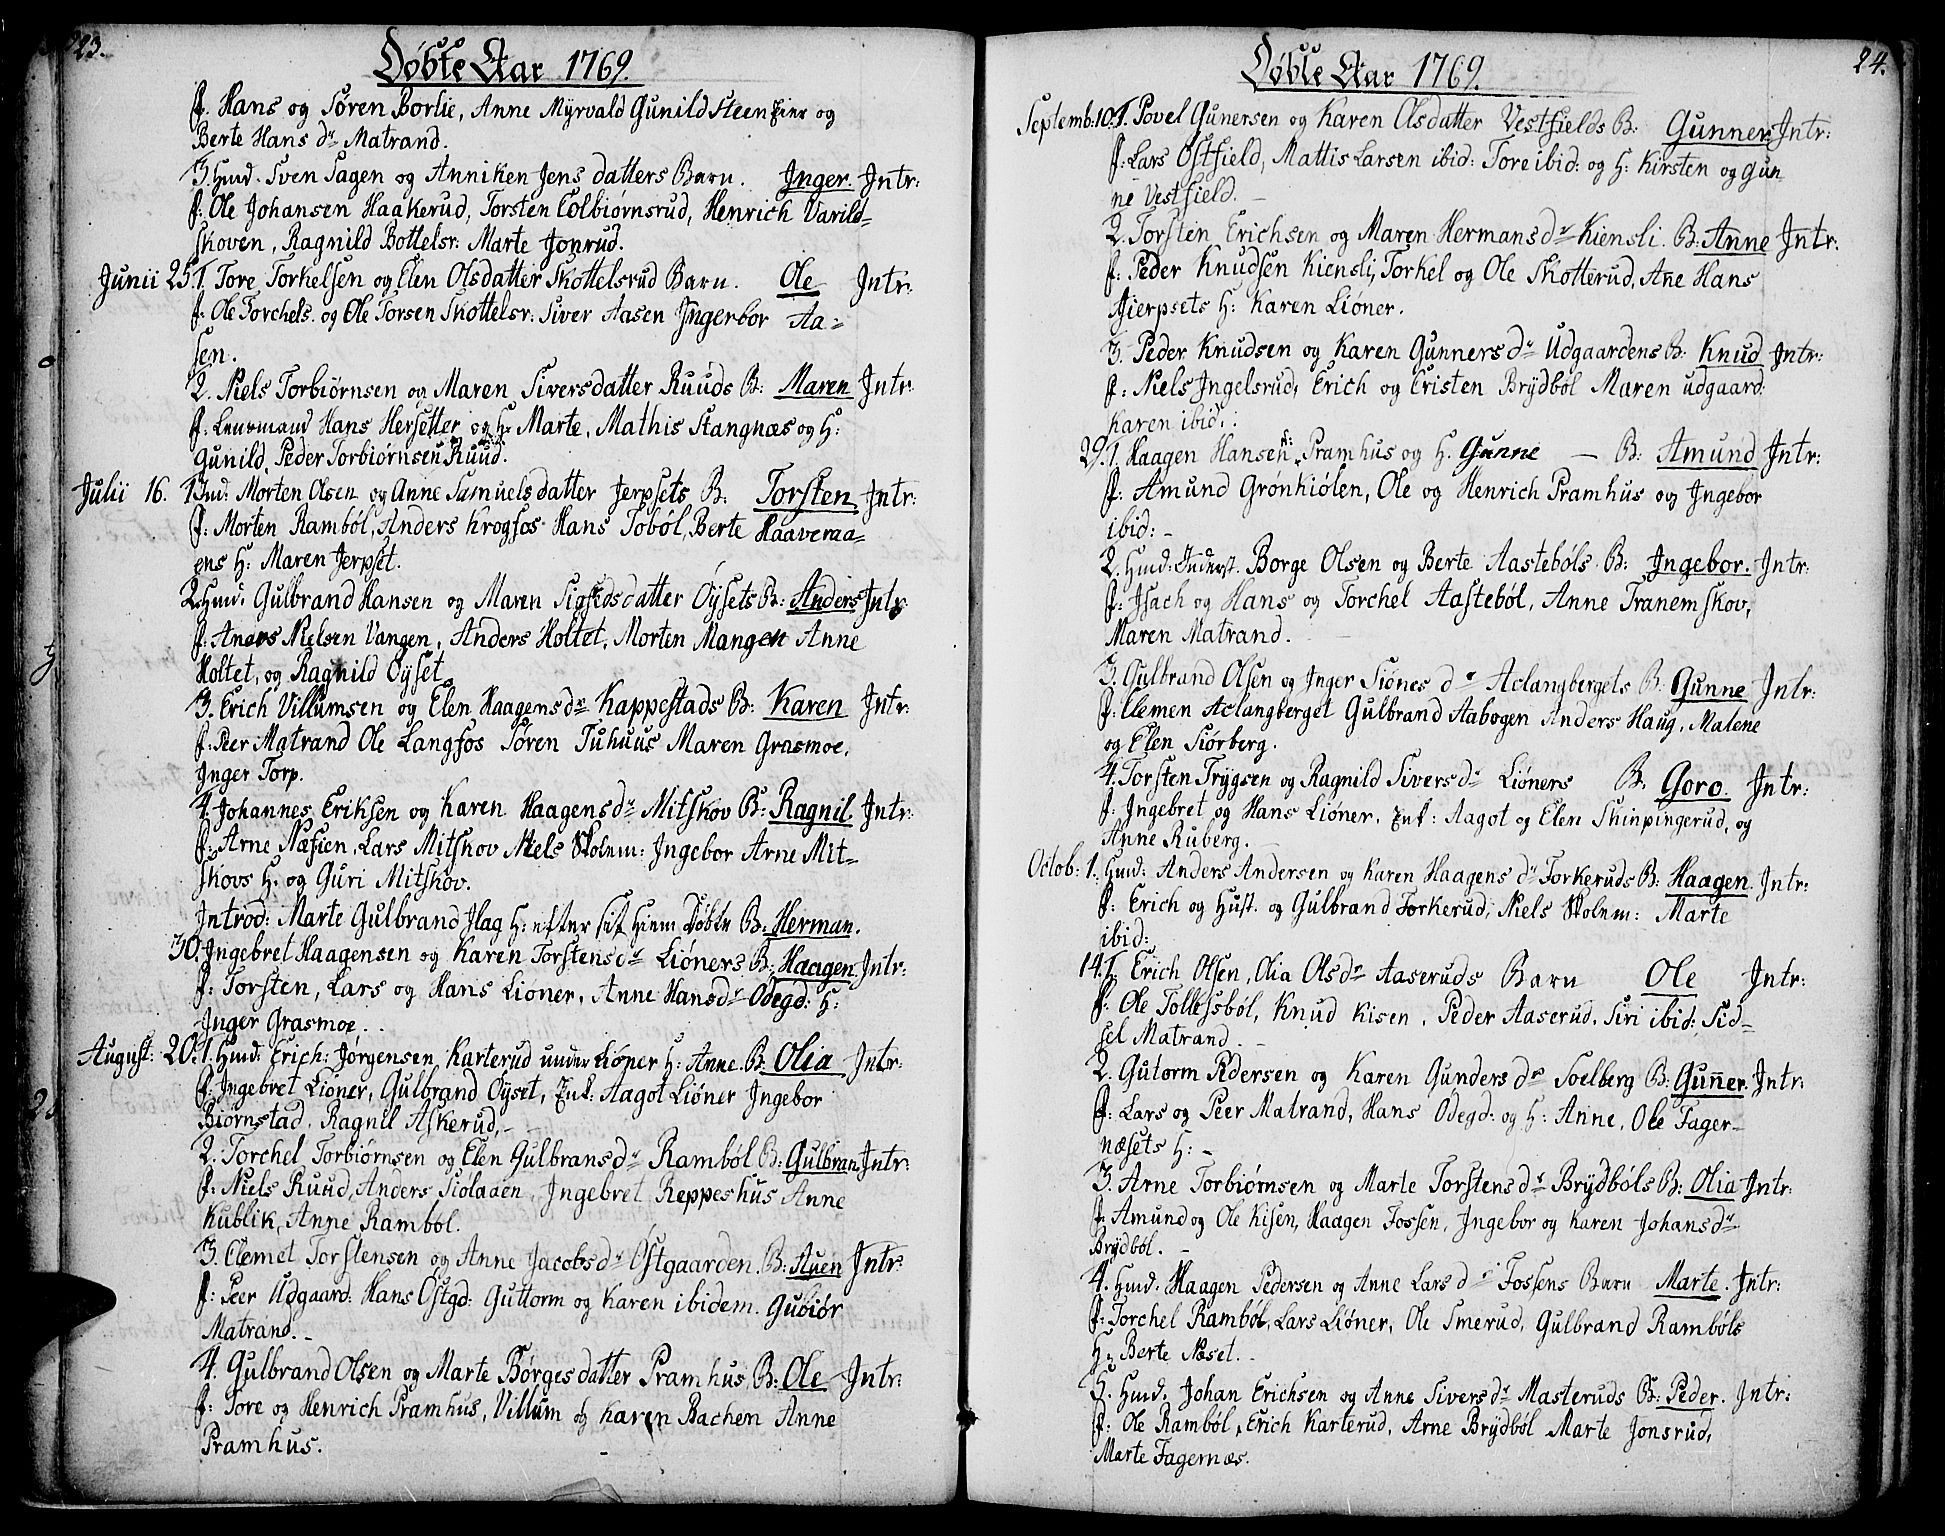 23.
Døbte Aar 1769.
f. Hans og Søren Borlie, Anne Myrvald Gunild Steen Eier og
Berte Hans dr Matrand.
3. Hmd. Sven Sagen og Anniken Jens datters Barn. Inger. Intr:
f: Ole Johansen Haakerud, Torsten Colbiørnsrud, Henrich Varild-
skoven, Ragnild Bottelsr: Marte Jonrud.
Junii 25. 1. Tore Torkelsen og Elen Olsdatter Skottelsrud Barn. Ole Intr:
f: Ole Torchels. og Ole Torsen Skottelsr: Siver Aasen Ingerbor Aa-
sen.
2. Niels Torbiørnsen og Maren Siversdatter Ruuds B: Maren Intr
f: Lensmand Hans Hersetter og H: Marte, Mathis Stangnæs og H:
Gunild, Peder Torbiørnsen Ruud.
Julii 16. 1 Hmd: Morten Olsen og Anne Samuels datter Jerpsets B: Torsten Intr:
f: Morten Rambøl, Anders Krogfos Hans Tobøl, Berte Haaveraa-
ens H: Maren Jerpset.
2. Hmd. Gulbrand Hansen og Maren Sigfredsdatter Øysets B: Anders Intr:
f: Aners Nielsen Vangen, Anders Holtet, Morten Mangen Anne
Holtet, og Ragnild Øyset.
3. Erich Villumsen og Elen Haagens dr Kappestads B: Karen Intr:
f: Peer Matrand Ole Langfos Søren Tuhuus Maren Grasmoe,
Inger Torp.
4. Johannes Eriksen og Karen Haagens dr Mitskov B: Ragnil. Intr:
f: Arne Næsien, Lars Mitskov Niels Skolem: Ingebor Arne Mit-
skovs H. og Guri Mitskov.
Introd: Marte Gulbrand Hag H: efter sit Hiem døbte B: Herman.
30. Ingebret Haagensen og Karen Torstens dr Liøners B: Haagen Intr:
f: Torsten, Lars og Hans Lioner, Anne Hansdr Ødegd: H:
Inger Grasmoe.
August: 20. 1. Hmd: Erich: Jørgensen Karterud under Liøner H: Anne. B: Olia Intr:
f: Ingebret Lioner, Gulbrand Øyset, Enk: Aagot Liøner Ingebor
Biørnstad, Ragnil Askerud.-
2. Torchel Torbiørnsen og Elen Gulbrans dr Rambøl B: Gulbran Intr:
f: Niels Ruud, Anders Siolaaen, Ingebret Reppeshus Anne
Kublik, Anne Rambøl.
3. Clemet Torstensen og Anne Jacobs dr Østgaarden. B: Auen Intr:
f: Peer Udgaard: Hans Østgd: Guttorm og Karen ibidem. Gubiør
Matrand.-
4. Gulbrand Olsen og Marte Børgesdatter Pramhus B: Ole Intr:
f: Tore og Henrich Pramhus, Villum og Karen Bachen Anne
Pramhus.
24.
Døbte Aar 1769.
Septemb: 10. 1. Povel Gunersen og Karen Olsdatter Vestfields B: Gunner Intr:
f: Lars Østfield, Mattis Larsen ibid: Tore ibid: og H: Kirsten og Gun-
ne Vestfield.-
2. Torsten Erichsen og Maren Hermans dr Kiensli. B: Anne Intr:
f: Peder Knudsen Kiensli, Torkel og Ole Skotterud, Ane Hans
Hierpsets H: Karen Lioner.
3. Peder Knudsen og Karen Gunners dr Udgaardens B: Knud Intr:
f: Niels Ingelsrud, Erich og Cristen Brydbøl Maren udgaard:
Karen ibid:
29. 1. Haagen Hansen Pramhus og H. Gunne - B: Amund Intr:
f: Amund Grønkiølen, Ole og Henrich Pramhus og Ingebor
ibid:-
2. Hmd: Inderst. Borge Olsen og Berte Aastebøls B: Ingebor. Intr:
f: Isach og Hans og Torchel Aastebøl, Anne Tranemskov,
Maren Matrand.
3. Gulbrand Olsen og Inger Siønes dr Aclangbergets B: Gunne Intr:
f: Clemen Aclangberget Gulbrand Aabogen Anders Haug, Malene
og Elen Siørberg.
4. Torsten Trygsen og Ragnild Sivers dr Liøners B. Goro. Intr:
f: Ingebret og Hans Liøner, Enk: Aagot og Elen Skinpingerud, og
Anne Ruberg.-
Octob: 1. Hmd: Anders Andersen og Karen Haagens dr Torkeruds B: Haagen. Intr:
f: Erich og Hust. og Gulbrand Torkerud, Niels Skolem: Marte
ibid:
14. 1. Erich Olsen, Olia Olsdr Aaseruds Barn Ole Intr:
f: Ole Tollefsbøl, Knud Kisen, Peder Aaserud, Siri ibid: Sid-
sel Matrand.-
2. Gutorm Pedersen og Karen Gunders dr Soelberg B: Guñer. Intr:
f: Lars og Peer Matrand, Hans Ødegd: og H: Anne, Ole Fager-
næsets H:-
3. Arne Torbiørnsen og Marte Torstens dr Brydbøls B: Olia Intr:
f: Amund og Ole Kisen, Haagen Fossen, Ingebor og Karen Johans dr
Brydbøl.-
4. Hmd: Haagen Pedersen og Anne Lars dr Fossens Barn Marte. Intr:
f: Torchel Rambøl, Lars Liøner, Ole Smerud, Gulbrand Rambøls
H: Berte Næset.-
5. Hmd. Johan Erichsen og Anne Sivers dr Masteruds B: Peder. Intr:
f: Ole Rambøl, Erich Karterud, Arne Brydbøl Marte Jonsrud,
Marte Fagernæs.